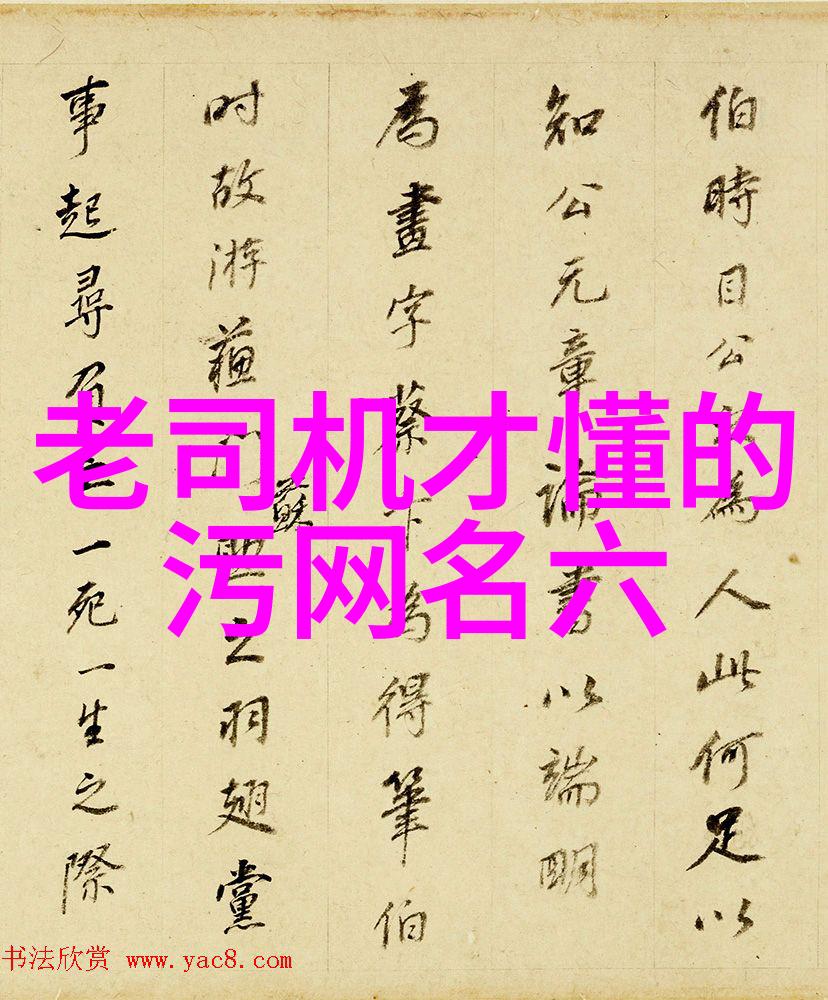 伯時目公為人此何足以
知公元章論書以端明
為畫字蔡卞為得筆伯
時故游蘇之羽翅黨
蘇
事起尋一死一生之際
老司机才懂的
污网名六
书法欣赏 www.yac8.com